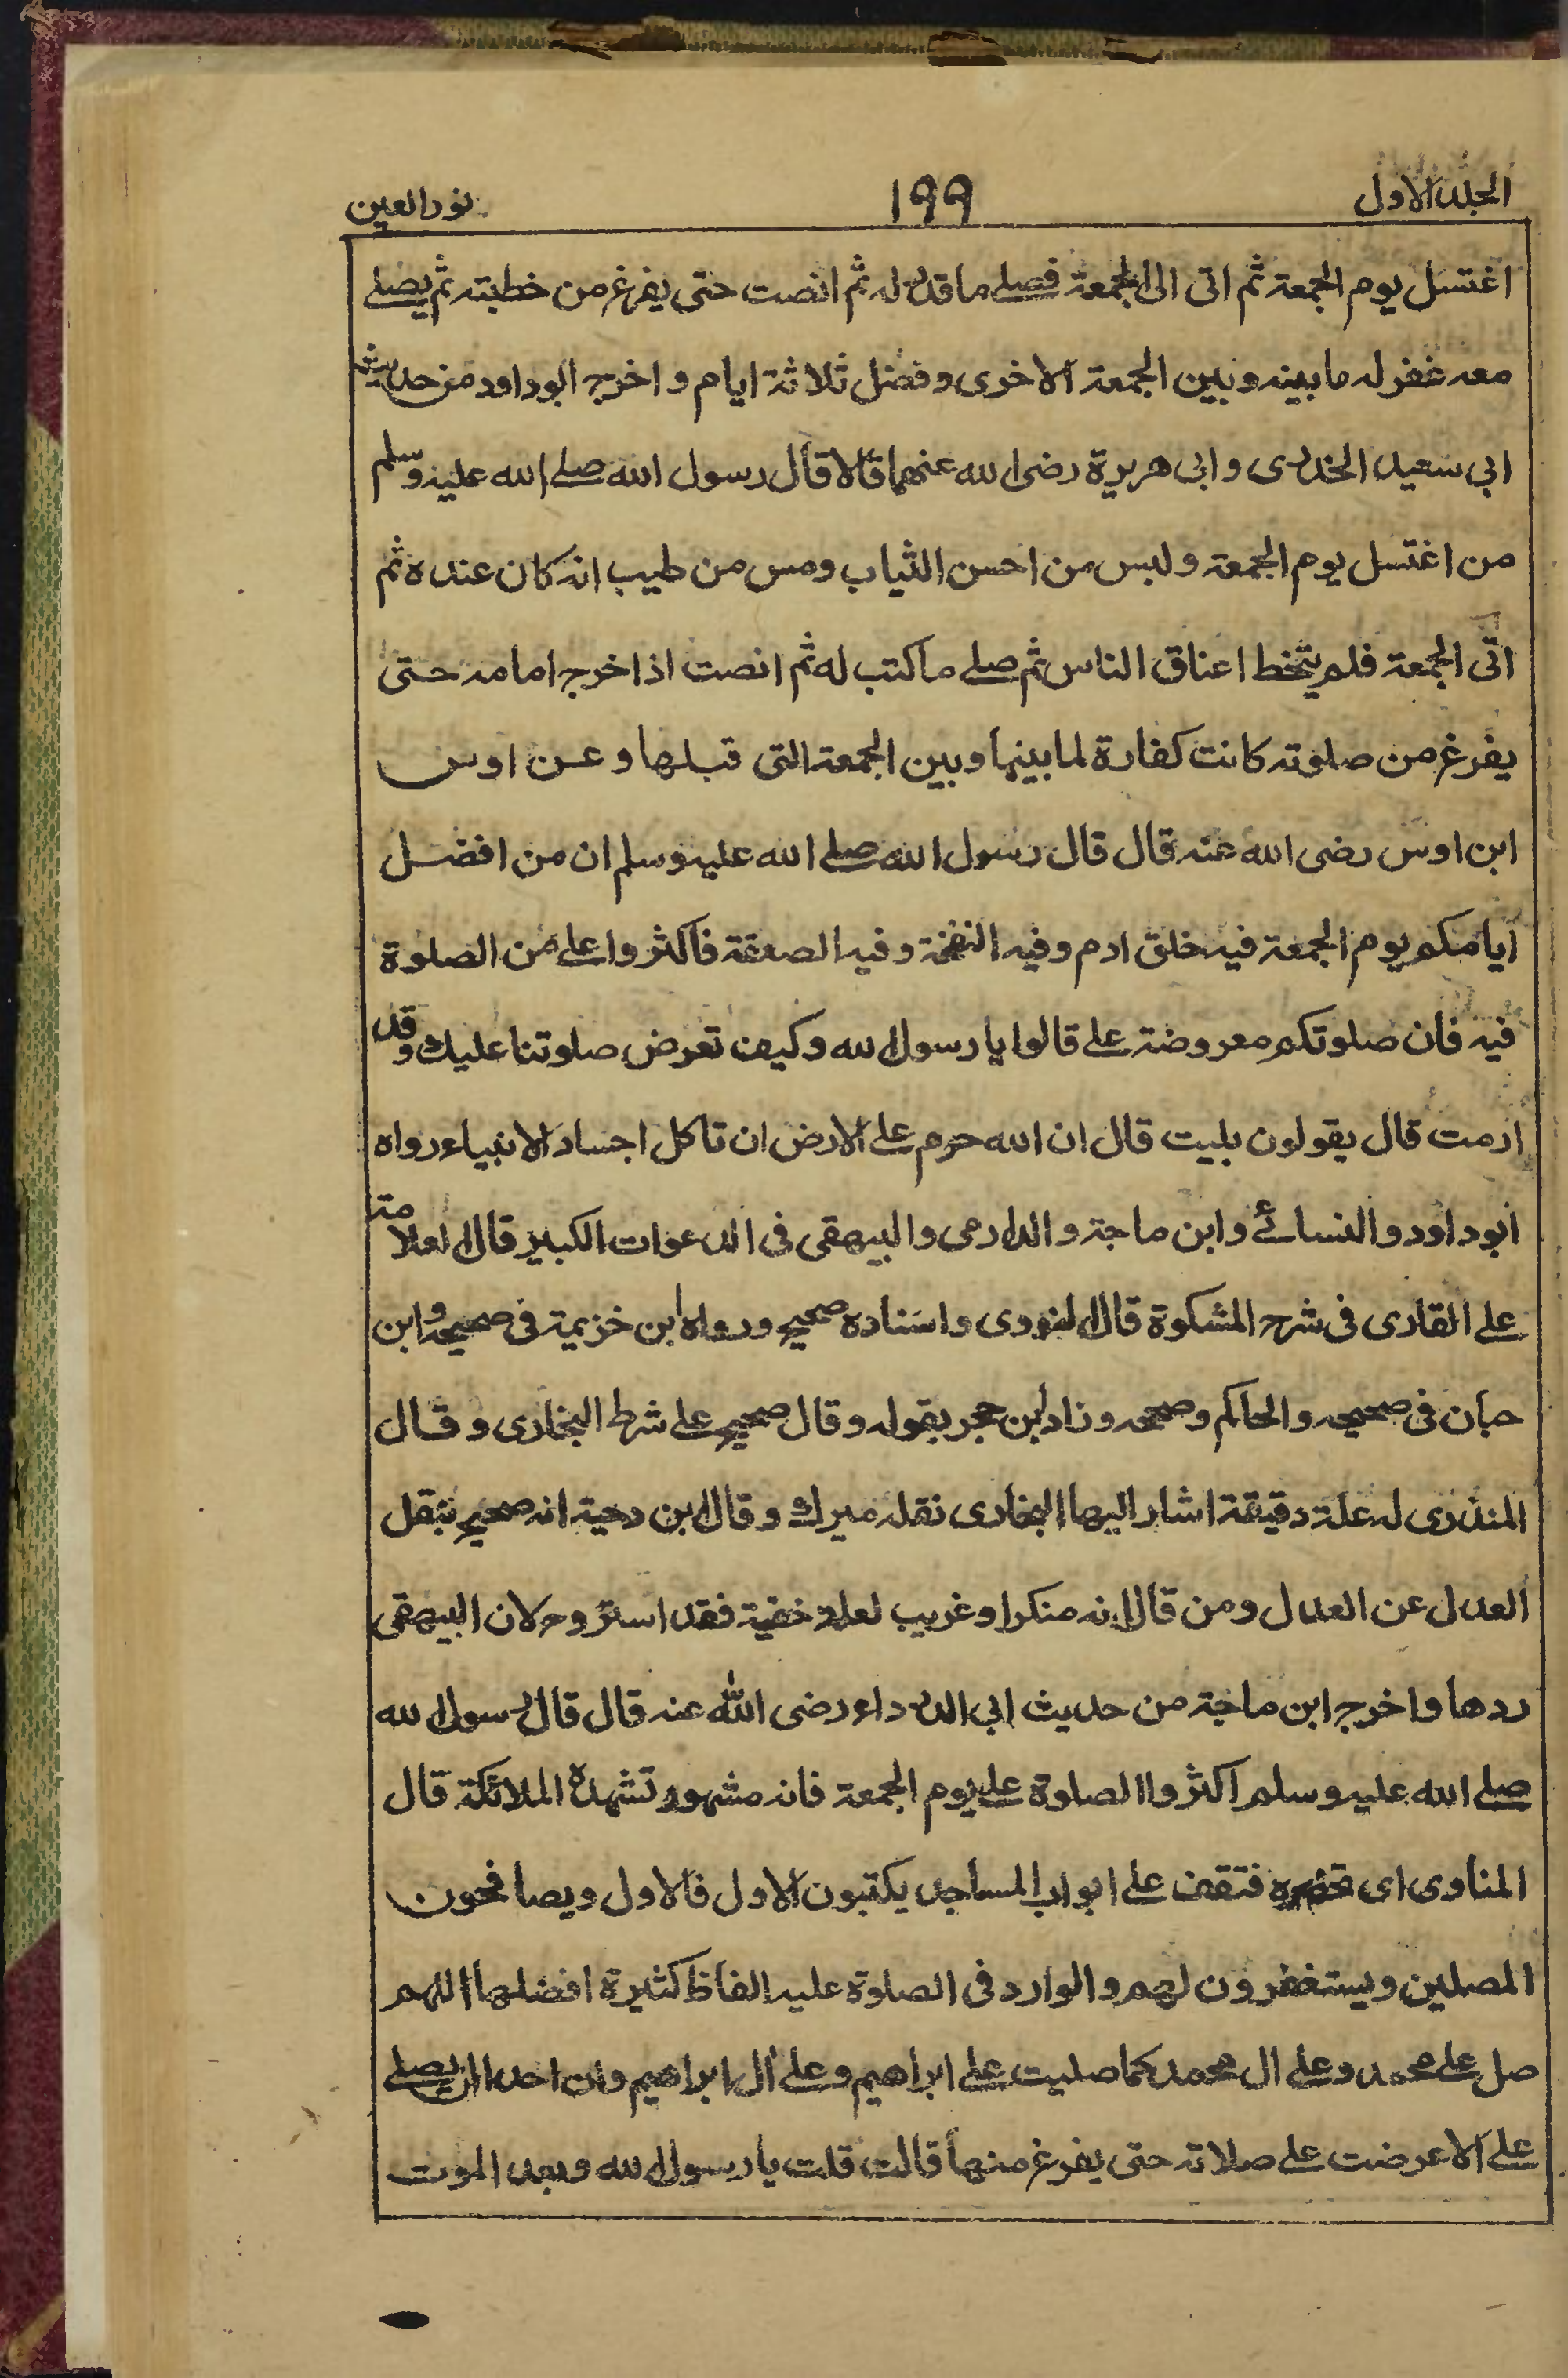 الجلد الاول
١٩٩
نور العين
اغتسل يوم الجمعة ثم اتى الى الجمعة فصلى ما قدر له ثم انصت حتى يفرغ من خطبته ثم يصلى
معه غفر له ما بينه وبين الجمعة الاخرى وفضل ثلاثة ايام واخرج ابو داود من حديث
ابى سعيد الخدرى وابى هريرة رضى الله عنهما قالا قال رسول الله صلى الله عليه وسلم
من اغتسل يوم الجمعة ولبس من احسن الثياب ومس من طيب انه كان عنده ثم
اتى الجمعة فلم يتخط اعناق الناس ثم صلى ما كتب له ثم انصت اذا خرج امامه حتى
يفرغ من صلوته كانت كفارة لما بينها وبين الجمعة التى قبلها وعن اوس
ابن اوس رضى الله عنه قال قال رسول الله صلى الله عليه وسلم ان من افضل
ايامكم يوم الجمعة فيه خلق ادم وفيه النفخة وفيه الصعقة فاكثروا على من الصلوة
فيه فان صلوتكم معروضة على قالوا يا رسول الله وكيف تعرض صلوتنا عليك وقد
ارمت قال يقولون بليت قال ان الله حرم على الارض ان تاكل اجساد الانبياء رواه
ابو داود والنسائے وابن ماجة والدارمى والبيهقى فى الدعوات الكبير قال العلامة
على القارى فى شرح المشكوة قال النووى واسناده صحيح ورواه ابن خزيمة فى صحيحه وابن
حبان فى صحيحه والحاكم وصححه وزاد ابن حجر بقوله وقال صحيح على شرط البخارى وقال
المنذرى له علة دقيقة اشار اليها البخارى نقله ميرك وقال ابن دحية انه صحيح بنقل
العدل عن العدل ومن قال انه منكر او غريب لعلة خفية فقد استروح لان البيهقى
ردها واخرج ابن ماجة من حديث ابى الدرداء رضى الله عنه قال قال رسول الله
صلى الله عليه وسلم اكثروا الصلوة على يوم الجمعة فانه مشهود تشهده الملائكة قال
المناوى اى تحضره فتقف على ابواب المساجد يكتبون الاول فالاول ويصافحون
المصلين ويستغفرون لهم والوارد فى الصلوة عليه الفاظ كثيرة افضلها اللهم
صل على محمد وعلى ال محمد كما صليت على ابراهيم وعلى ال ابراهيم وان احدا لن يصلى
على الا عرضت على صلاته حتى يفرغ منها قالت قلت يا رسول الله وبعد الموت